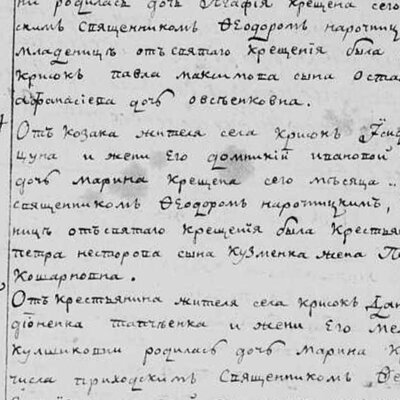 ни родилась дочь Агафия крещена сего
скимъ священникомъ Ѳеодоромъ нарочниц
младеницъ отъ святаго крещенїя была
крисокъ павла максимова сына оста
афанасіева дочь овсѣенковна.
Отъ козака жителя села крисокъ
цуна и жени его домникїй ивановой
дочь марина крещена сего мѣсяца
священникомъ Ѳеодоромъ нарочницкимъ,
ницъ отъ святаго крещенїя была крестья
петра несторова сына кузменка жена П
кошарновна.
Отъ крестьянина жителя села крисокъ Дан
дїоненка тапчѣенка и жени его ме
кулшиковни родилась дочь марина к
числа приходскимъ священникомъ Ѳе